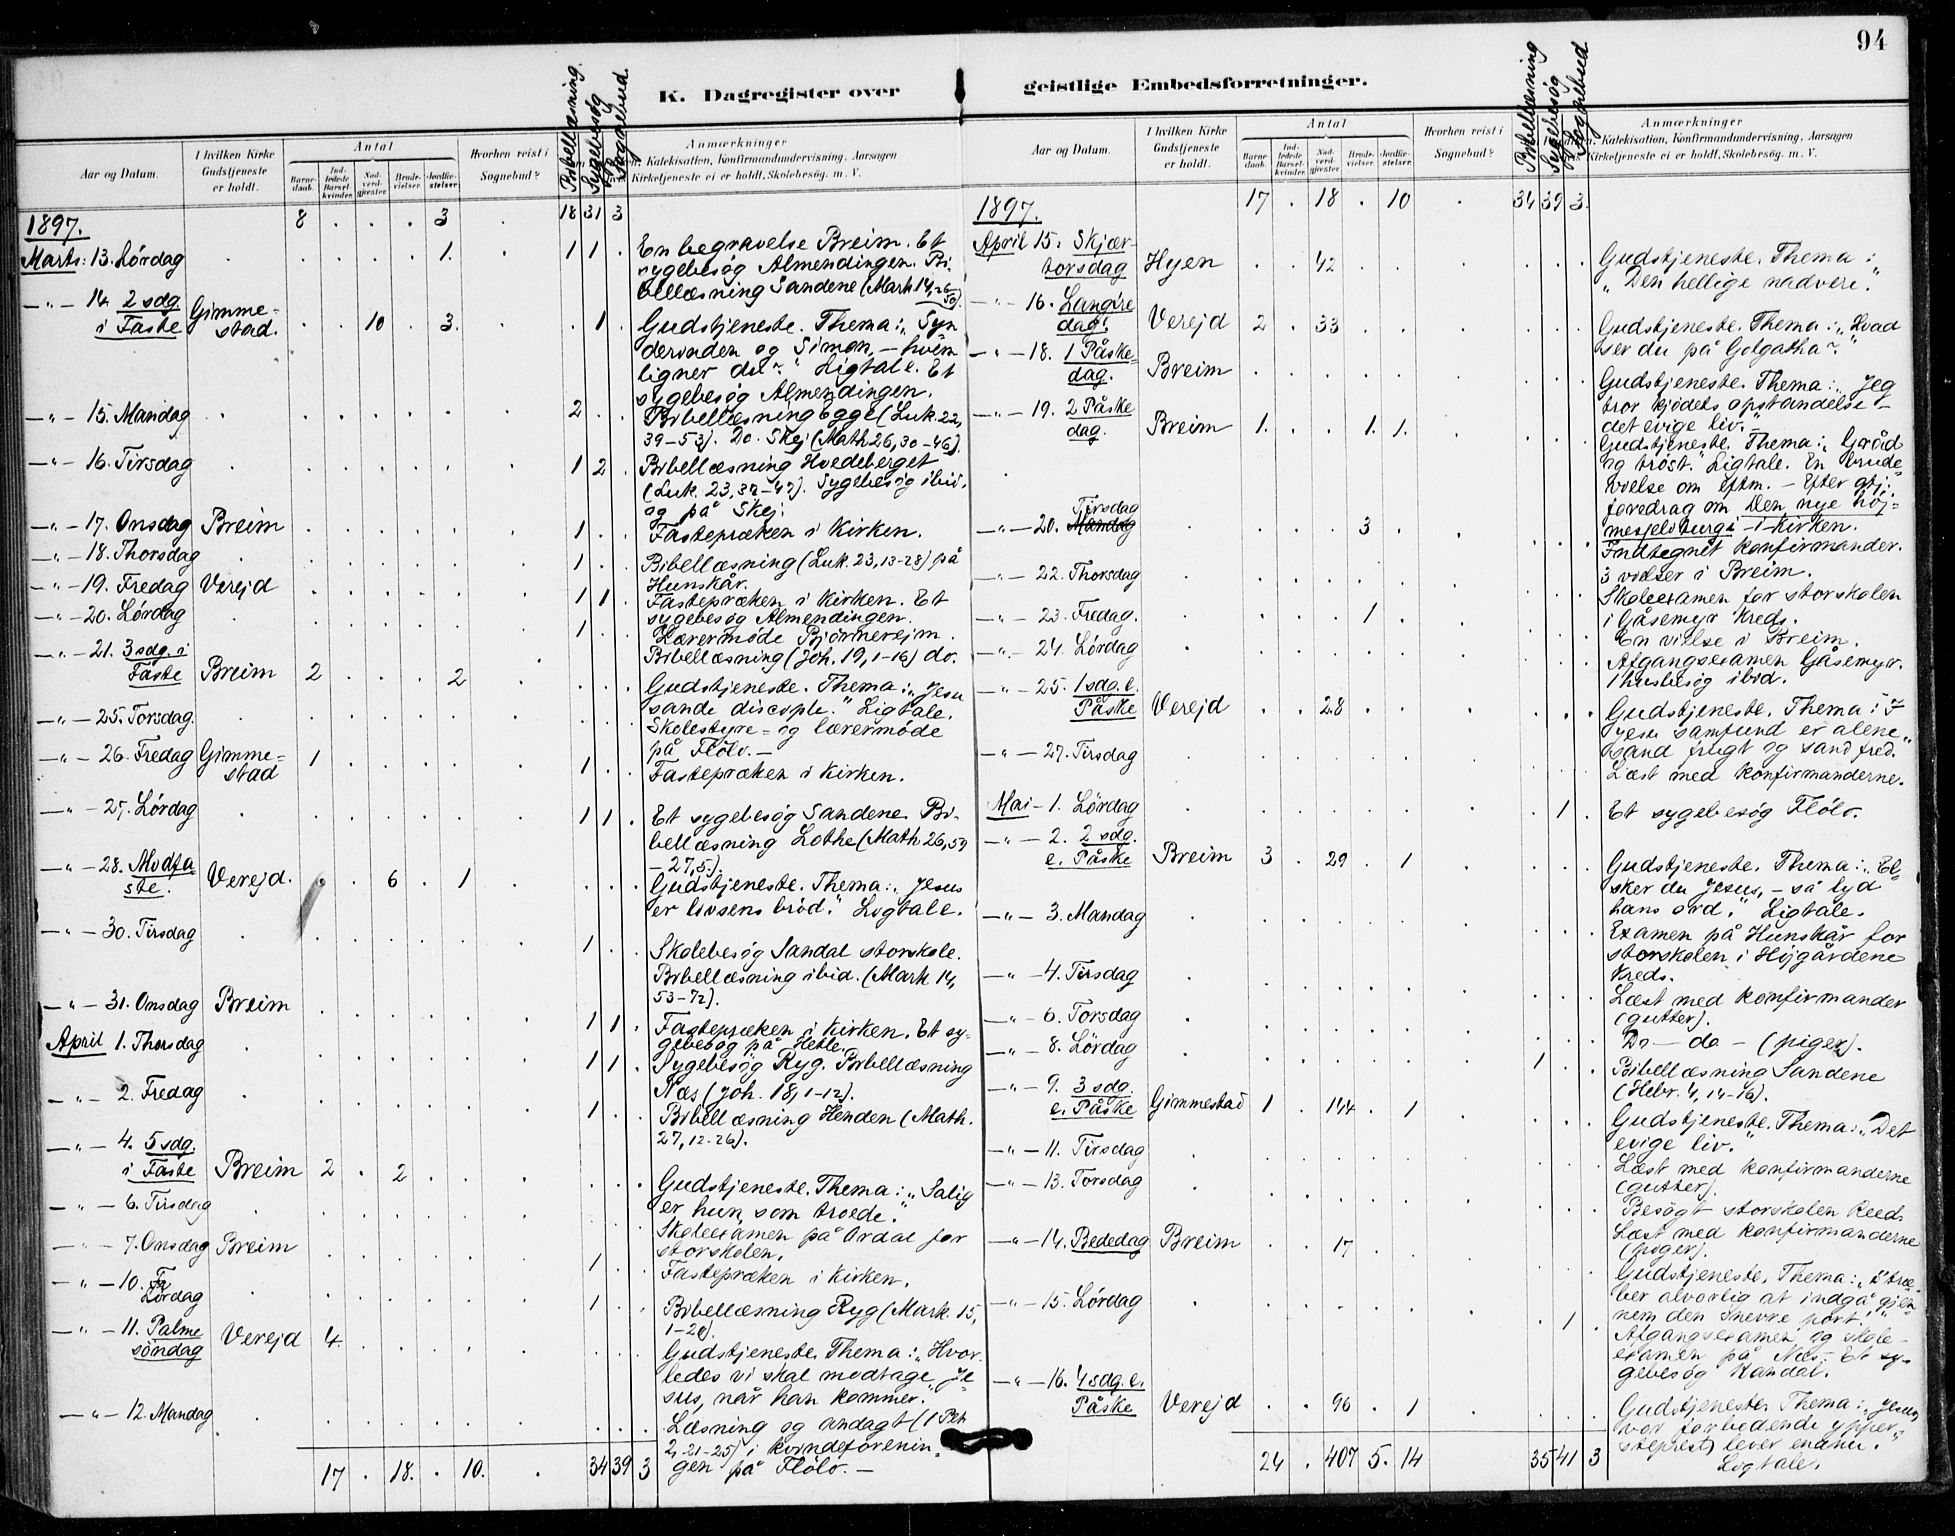 94
K. Dagregister over geistlige Embedsforretninger.
Aar og Datum.
I hvilken Kirke Gudstjeneste er holdt.
Antal
Barnedaab.
Indledede Barselkvinder.
Nadverdgjester.
Brudevielser.
Jordfæstelser.
Hvorhen reist i Sognebud?
Bibellæsning.
Sygebesøg
Sognebud.
Anmærkninger
Katekisation, Konfirmandundervisning, Aarsagen
Kirketjeneste ei er holdt, Skolebesøg. m. V.
1897. 8 . . . 3 . 18 31 3
Marts: 13. Lördag . . . . . 1. . 1 1 . En begravelse Breim. Et
sygebesög Almendingen. Bi-
bellæsning Sandene (Mark 14, 26-
50).
—"— 14. 2 sdg. i Faste Gimmestad. . . 10 . 3. . . 1 . Gudstjeneste. Thema: „Syn
derinden og Simon, – hvem
ligner du?" Ligtale. Et
sygebesög Almendingen.
—"— 15. Mandag . . . . . . . 2 . . Bibellæsning Egge (Luk. 22,
39–53). Do. Skej (Math 26, 30–46).
—"— 16. Tirsdag . . . . . . . 1 2 . Bibellæsning Hvedeberget
(Luk. 23, 32–49). Sygebesög ibid.
og på Skej.
—"— 17. Onsdag Breim . . . . . . 1 . . Fastepræken i Kirken.
—"— 18. Thorsdag . . . . . . . 1 . . Bibellæsning (Luk. 23, 13–28) på
Hunskår.
—"— 19. Fredag Verejd . . . . . . 1 1 . Fastepræken i Kirken. Et
sygebesög Almendingen.
—"— 20. Lördag . . . . . . . 1 . . Lærermöde Björnerejm.
Bibellæsning (Joh. 19, 1–16) do.
—"— 21. 3 sdg. i Faste Breim 2 . . . 2 . . . . Gudstjeneste. Thema: „Jesu
sande disciple." Ligtale.
—"— 25. Torsdag. . . . . . . . . . . Skolestyre- og lærermöde
på Flölo. –
—"— 26. Fredag Gimmestad 1 . . . . . 1 . . Fastepræken i Kirken.
—"— 27. Lördag . . . . . . . 1 1 . Et sygebesög Sandene. Bi-
bellæsning Lothe (Math 26, 59
– 27, 5).
—"— 28. Midfaste. Verejd. . . 6 . 1 . . . . Gudstjeneste. Thema: „Jesus
er livsens bröd." Ligtale.
—"— 30. Tirsdag . . . . . . . 1 . . Skolebesög Sandal storskole.
Bibellæsning ibid. (Mark 14,
53–72).
—"— 31. Onsdag Breim . . . . . . 1 1 . Fastepræken i Kirken. Et sy-
gebesög på Hetle.
April 1. Thorsdag . . . . . . . 1 1 . Sygebesög Ryg. Bibellæsning
Næs (Joh. 18, 1–12).
—"— 2. Fredag . . . . . . . 1 . . Bibellæsning Henden (Math.
27, 12–26).
—"— 4. 5 sdg. i Faste Breim 2 . 2 . . . . . . Gudstjeneste. Thema: „Salig
er hun, som troede."
—"— 6. Tirsdag . . . . . . . . . . Skoleexamen på Ordal for
storskolen.
—"— 7. Onsdag Breim . . . . . . 1 . . Fastepræken i Kirken.
—"— 10. Lördag . . . . . . . 1 . . Bibellæsning Ryg (Mark. 15,
1–20).
—"— 11. Palmesöndag Verejd 4. . . . . . . . . Gudstjeneste. Thema: „Hvor-
ledes vi skal modtage Je-
sus, når han kommer."
—"— 12. Mandag . . . . . . . . . . Læsning og andagt (1 Pet
2, 21–25) i kvindeforenin-
gen på Flölo. –
17 . 18. . 10. . 34 39 3
Aar og Datum.
I hvilken Kirke Gudstjeneste er holdt.
Antal
Barnedaab.
Indledede Barselkvinder.
Nadverdgjester.
Brudevielser.
Jordfæstelser.
Hvorhen reist i Sognebud?
Bibellæsning
Sygebesøg
Sognebud
Anmærkninger
Katekisation, Konfirmandundervisning, Aarsagen
Kirketjeneste ei er holdt, Skolebesøg. m. V.
1897. 17 . 18 . 10 . 34 39 3.
April 15. Skjærtorsdag Hyen . . 42 . . . . . . Gudstjeneste. Thema:
„Den hellige nadvere."
—"— 16. Langfredag. Verejd 2 . 33 . . . . . . Gudstjeneste. Thema: „Hvad
ser du på Golgatha?"
—"— 18. 1 Påskedag. Breim . . . . . . . . . Gudstjeneste. Thema: „Jeg
tror kjödets opstandelse –
det evige liv."
—"— 19. 2 Påskedag. Breim 1. . . 1. 1. . . . . Gudstjeneste. Thema: „Gråd
og tröst." Ligtale. En brude-
vielse om eftm. – Efter gtj:
foredrag om Den nye höj-
mesjeliturgi i Kirken.
—"— 20. Mandag Tirsdag . . . 3 . . . . . Indtegnet konfirmander.
3 vielser i Breim.
—"— 22. Thorsdag . . . . . . . . . . Skoleexamen for storskolen
i Gåsemyr Kreds.
—"— 23. Fredag. . . . . 1 . . . . . En vielse i Breim.
—"— 24. Lördag . . . . . . . . . . Afgangsexamen Gåsemyr.
1 husbesög ibid.
—"— 25. 1 sdg. e. Påske Verejd . . 28 . . . . . . Gudstjeneste. Thema: „I
Jesu samfund er alene
sand frugt og sand fred."
—"— 27. Tirsdag . . . . . . . . . . Læst med konfirmanderne.
Mai – 1. Lördag . . . . . . . . 1 . Et sygebesög Flölo.
—"— 2. 2 sdg. e. Påske Breim 3 . 29 . 1 . . . . Gudstjeneste. Thema: „El-
sker du Jesus, – så lyd
hans ord." Ligtale.
—"— 3. Mandag . . . . . . . . . . Examen på Hunskår for
storskolen i Höjgårdene
Kreds.
—"— 4. Tirsdag . . . . . . . . . . Læst med konfirmander
(gutter).
—"— 6. Torsdag . . . . . . . . . . Do – do – (piger).
—"— 8. Lördag . . . . . . . 1 . . Bibellæsning Sandene
(Hebr. 4, 14–16).
—"— 9. 3 sdg. e. Påske Gimmestad 1 . 144 . 1 . . . . Gudstjeneste. Thema: „Det
evige liv."
—"— 11. Tirsdag . . . . . . . . . . Læst med konfirmanderne
(gutter).
—"— 13. Torsdag . . . . . . . . . . Besögt storskolen Reed.
Læst med konfirmanderne
(piger).
—"— 14. Bededag Breim . . 17 . . . . . . Gudstjeneste. Thema: „Stræ-
ber alvorlig at indgå gjen-
nem den snevre port."
—"— 15. Lördag . . . . . . . . 1 . Afgangsexamen og skole-
examen på Næs. – Et sy-
gebesög Kandal.
—"— 16. 4 sdg. e. Påske Verejd . . 96 . 1 . . . . Gudstjeneste. Thema: „Jesus
vor forbedende ypper-
steprest lever endnu."
Ligtale.
24 . 407 5. 14 35 41 3